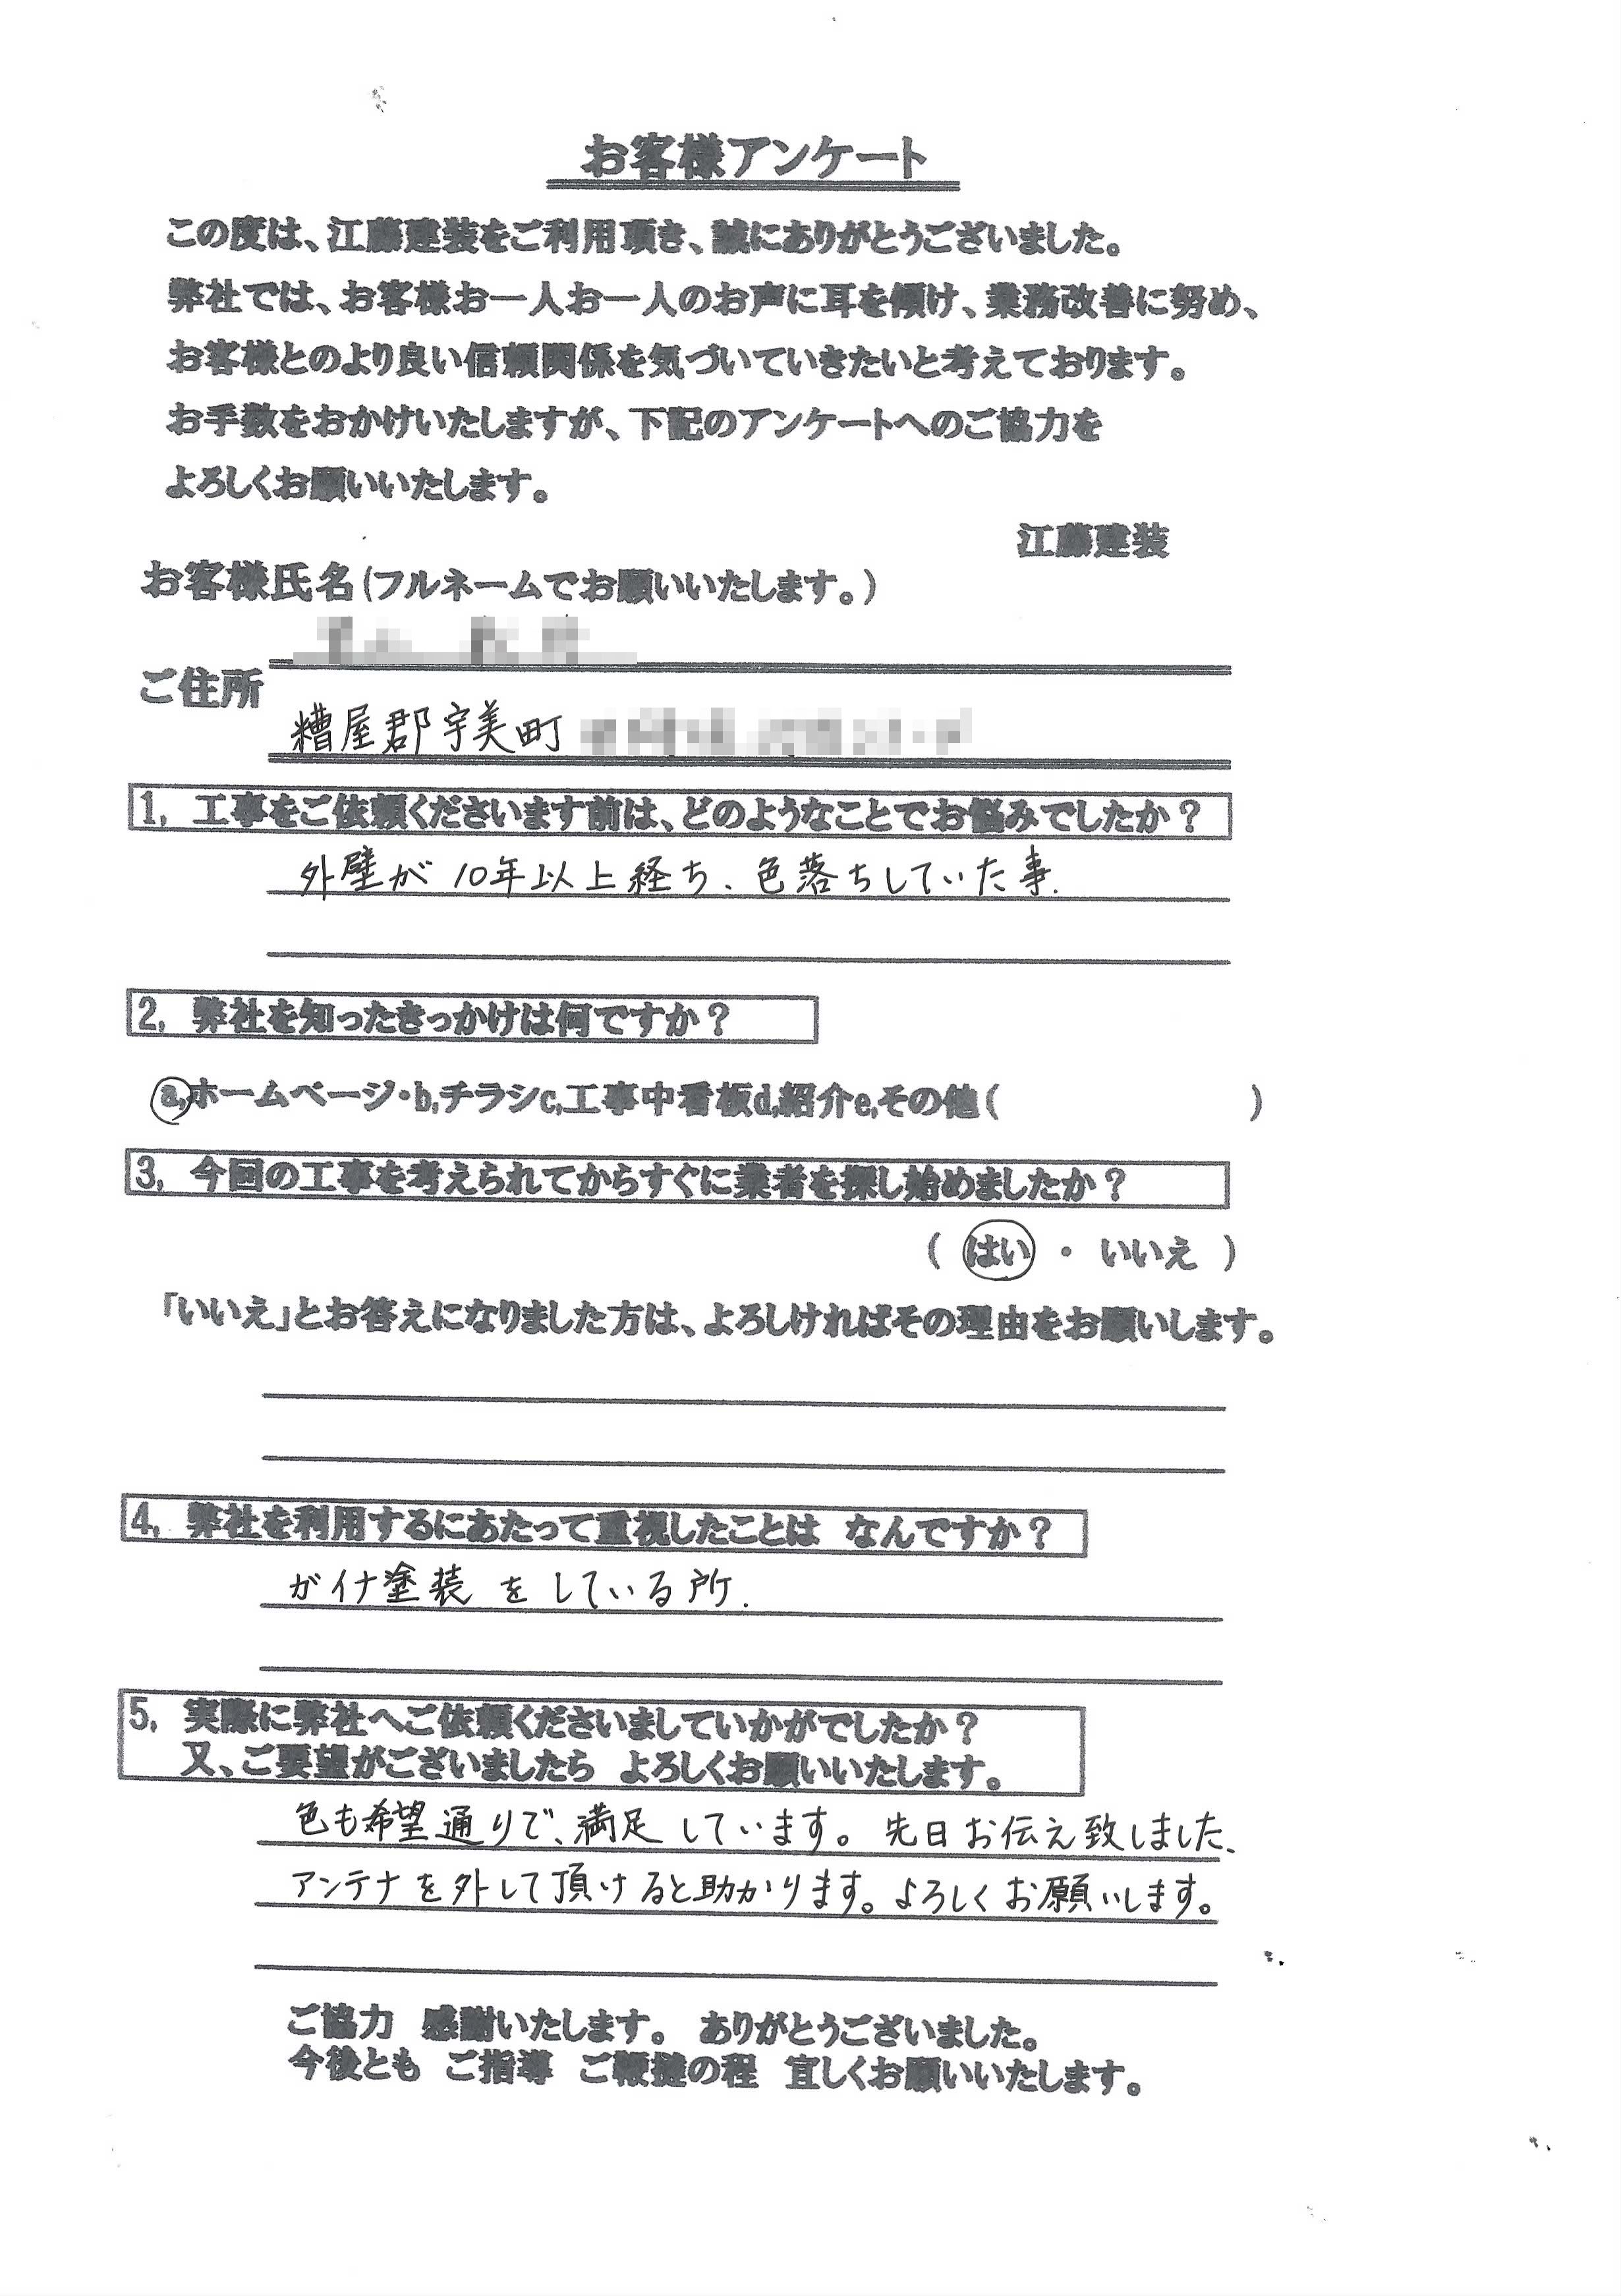 お客様アンケート
この度は、江藤建装をご利用頂き、誠にありがとうございました。
弊社では、お客様お一人お一人のお声に耳を傾け、業務改善に努め、
お客様とのより良い信頼関係を気づいていきたいと考えております。
お手数をおかけいたしますが、下記のアンケートへのご協力を
よろしくお願いいたします。
江藤建装
お客様氏名(フルネームでお願いいたします。)
ご住所
糟屋郡宇美町
1, 工事をご依頼くださいます前は、どのようなことでお悩みでしたか?
外壁が10年以上経ち、色落ちしていた事.
2, 弊社を知ったきっかけは何ですか?
a,ホームページ・b,チラシc,工事中看板d,紹介e,その他( )
3, 今回の工事を考えられてからすぐに業者を探し始めましたか?
( はい ・ いいえ )
「いいえ」とお答えになりました方は、よろしければその理由をお願いします。
4, 弊社を利用するにあたって重視したことは なんですか?
ガイナ塗装をしている所.
5, 実際に弊社へご依頼くださいましていかがでしたか?
又、ご要望がございましたら よろしくお願いいたします。
色も希望通りで、満足しています。先日お伝え致しました、
アンテナを外して頂けると助かります。よろしくお願いします。
ご協力 感謝いたします。 ありがとうございました。
今後とも ご指導 ご鞭撻の程 宜しくお願いいたします。